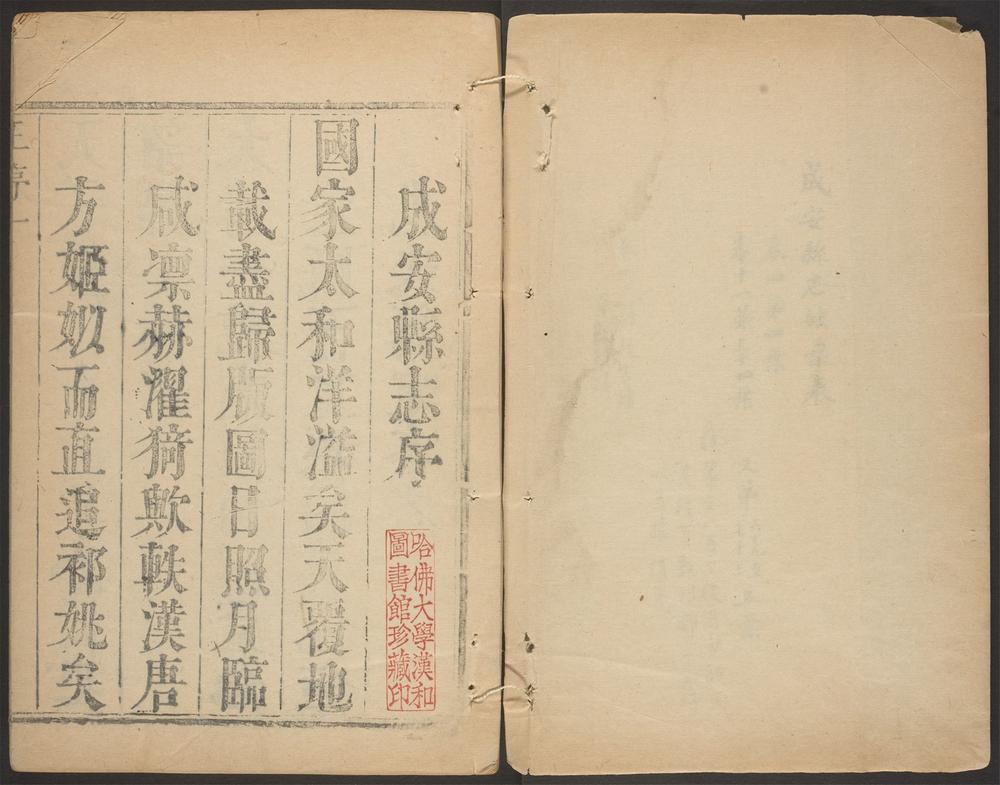 成安縣志序
哈佛大學漢和
圖書館珍藏印
國家太和洋溢矣天覆地
載盡歸版圖日照月臨
咸凛赫濯猗歟軼漢唐
方姬姒而直追祁姚矣